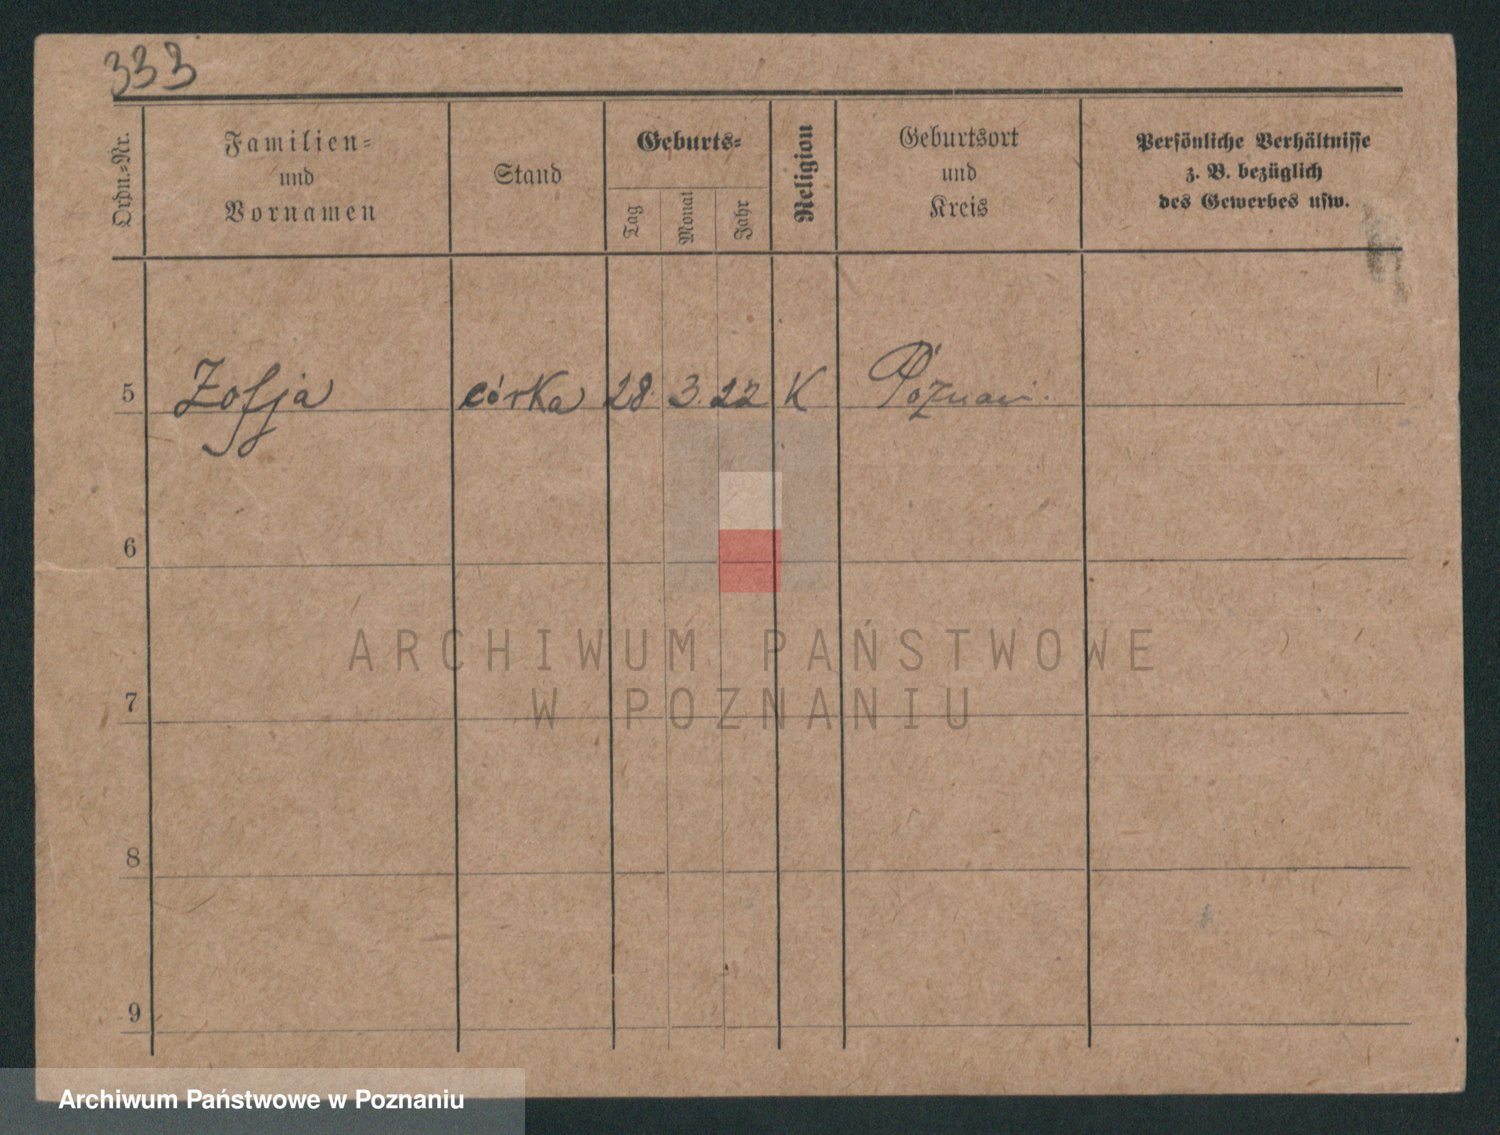 333
Ordn.-Nr.
Familien-
und
Vornamen
Stand
Geburts-
Tag
Monat
Jahr
Religion
Geburtsort
und
Kreis
Persönliche Verhältnisse
z. B. bezüglich
des Gewerbes usw.
5 Zofja córka 28. 3. 22 K Poznań.
6
7
8
9
ARCHIWUM PAŃSTWOWE
W POZNANIU
Archiwum Państwowe w Poznaniu